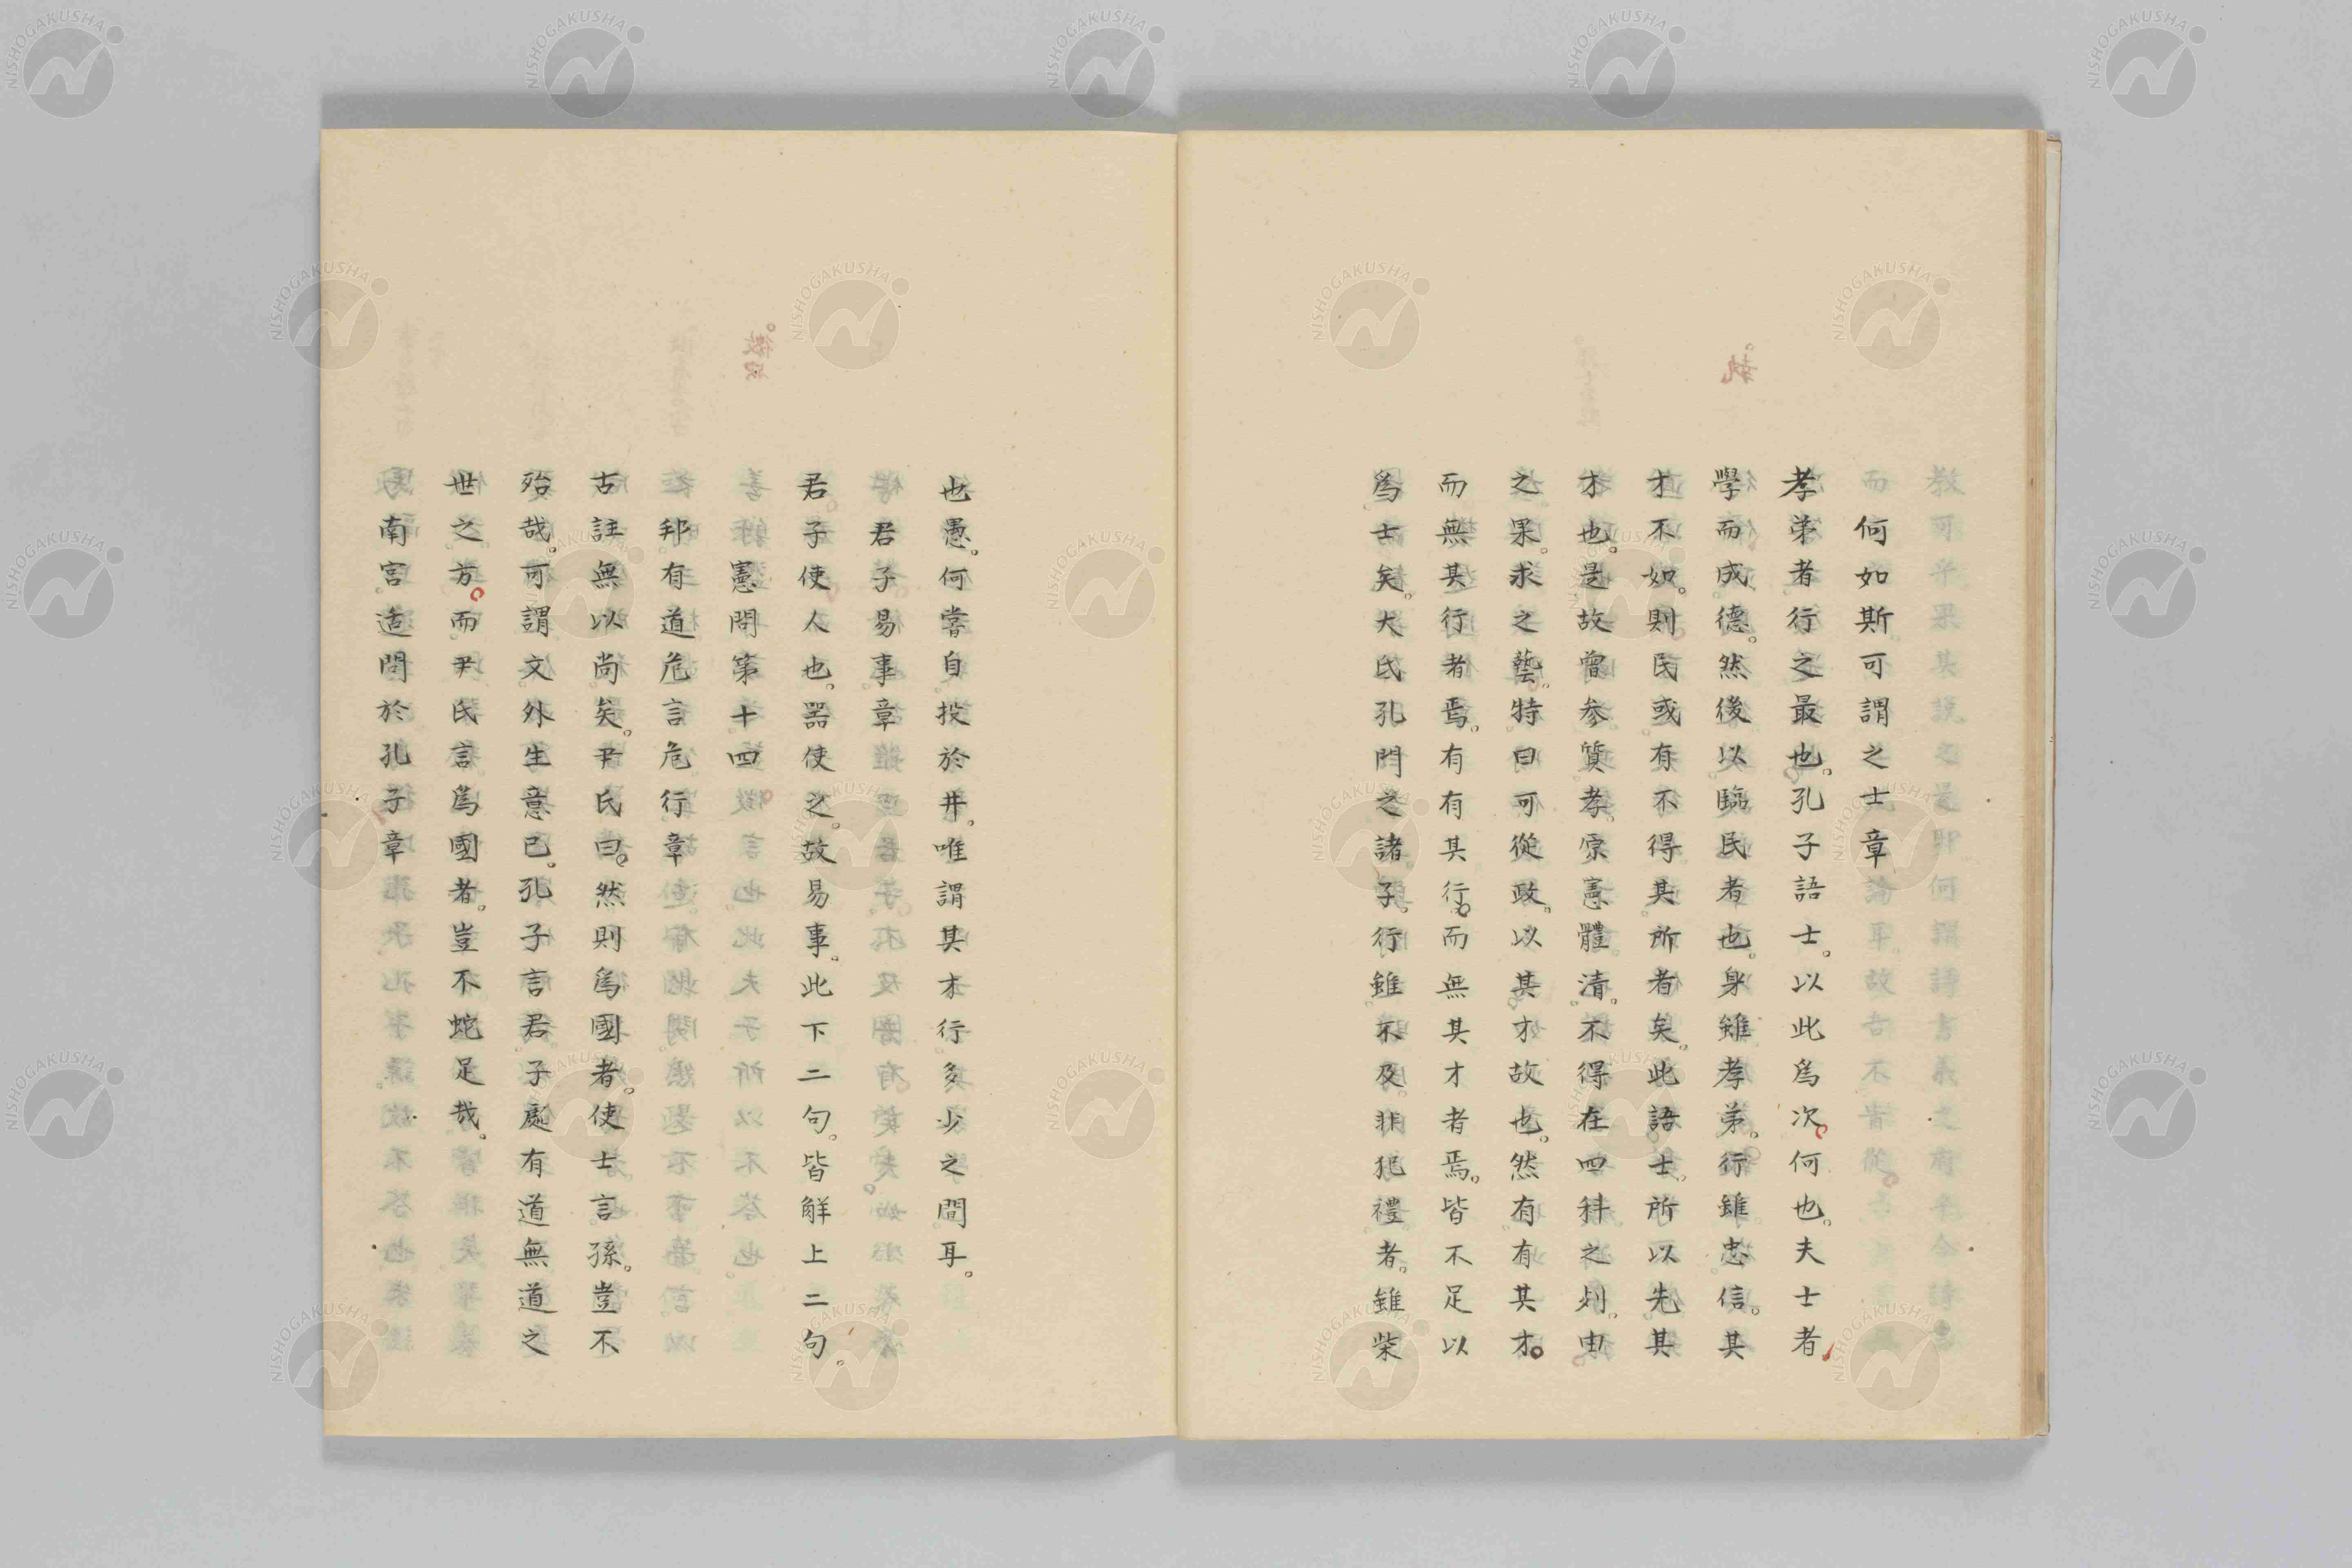 何如斯可謂之士章
孝弟者行之最也。孔子語士。以此爲次。何也。夫士者
學而成德。然後以臨民者也。身雖孝弟。行雖忠信。其
才不如。則民或有不得其所者矣。此語士。所以先其
才也。是故曾參質孝。原憲體清。不得在四科之列。由
之果。求之藝。特曰可從政。以其才故也。然有有其才。
而無其行者焉。有有其行。而無其才者焉。皆不足以
爲士矣。大氐孔門之諸子。行雖不及。非犯禮者。雖柴
也愚。何嘗自投於井。唯謂其才行多少之間耳。
君子易事章
君子使人也。器使之。故易事。此下二句。皆解上二句。
憲問第十四
邦有道危言危行章
古註無以尚矣。尹氏曰。然則爲國者。使士言孫。豈不
殆哉。可謂文外生意已。孔子言君子處有道無道之
世之方。而尹氏言爲國者。豈不蛇足哉。
南宮适問於孔子章
NISHOGAKUSHA